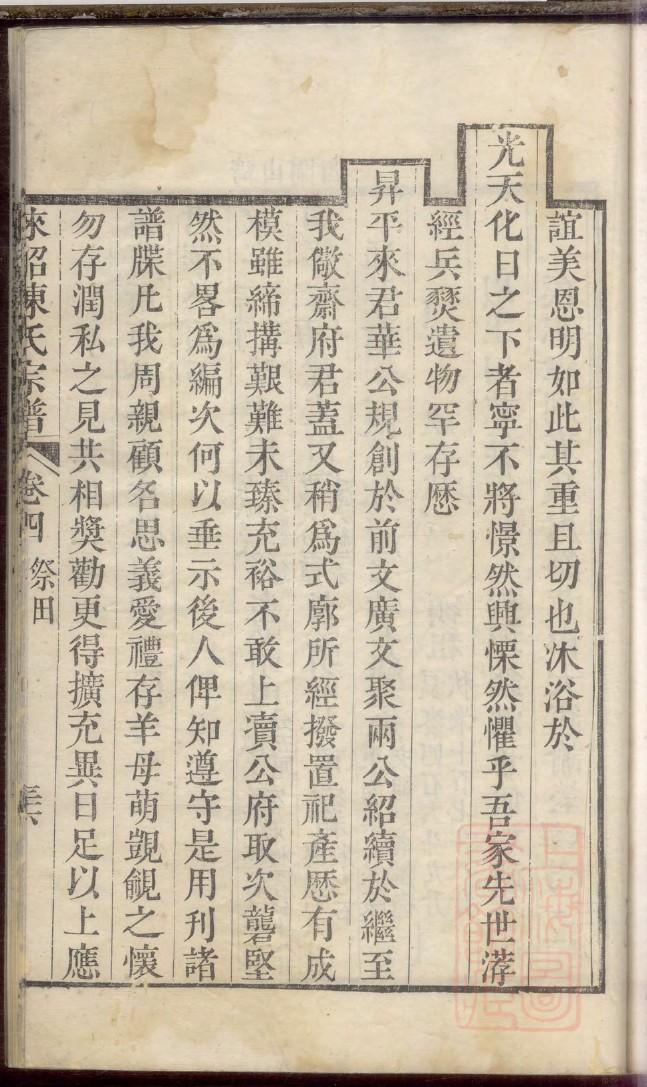 誼美恩明如此其重且切也沐浴於
光天化日之下者寧不將憬然興慄然懼乎吾家先世洊
經兵燹遺物罕存歷
昇平來君華公規創於前文廣文聚兩公紹續於繼至
我儆齋府君蓋又稍爲式廓所經撥置祀產歷有成
模雖締搆艱難未臻充裕不敢上凟公府取次礱堅
然不畧爲編次何以垂示後人俾知遵守是用刊諸
譜牒凡我周親顧名思義愛禮存羊母萌覬覦之懷
勿存潤私之見共相獎勸更得擴充異日足以上應
陳氏宗譜 卷四 祭田